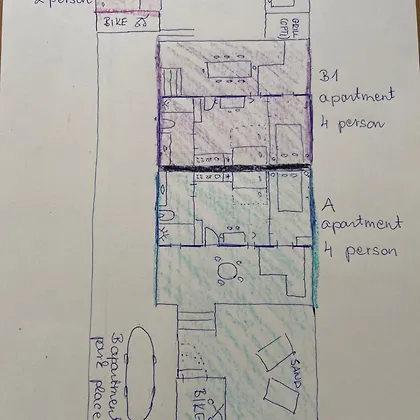 2 person
BIKE
GRILL
(OPTI)
B1
apartment
4 person
A
apartment
4 person
B apartment
park place
BIKE
SAND